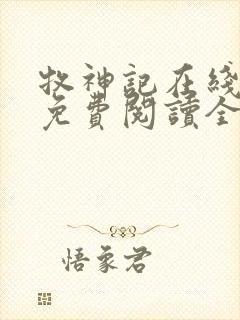 牧神記在綫
免費閱讀全
悟象君